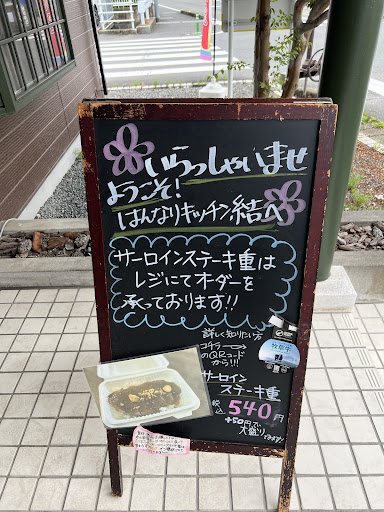 いらっしゃいませ
ようこそ!
はんなりキッチン結へ
サーロインステーキ重は
レジにてオーダーを
承っております!!
詳しく知りたい方
コチラ→
のQRコード
から!!!
サーロイン
ステーキ重
税込 540円
+50円で
大盛り